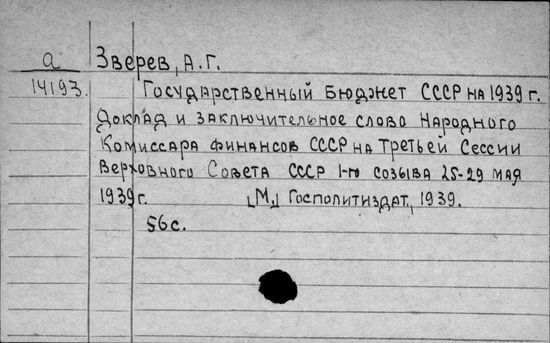 а Зверев, А.Г.
14193. Государственный Бюджет СССР на 1939 г.
Доклад и заключительное слово Народного
Комиссара финансов СССР на Третьей Сессии
Верховного Совета СССР 1-го созыва 25-29 мая
1939 г. [М.] Госполитиздат, 1939.
56 с.